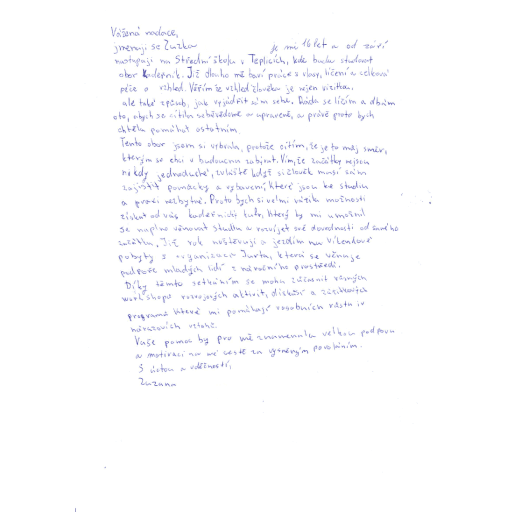 Vážená nadace,
jmenuji se Zuzka je mi 16 let a od září
nastupuji na Střední školu v Teplicích, kde budu studovat
obor Kadeřník. Již dlouho mě baví práce s vlasy, líčení a celková
péče o vzhled. Věřím že vzhled člověka je nejen vizitka,
ale také způsob, jak vyjádřit sám sebe. Ráda se líčím a dbám
oto, abych se cítila sebevědomě a upraveně, a právě proto bych
chtěla pomáhat ostatním.
Tento obor jsem si vybrala, protože cítím, že je to můj směr,
kterým se chci v budoucnu zabírat. Vím, že začátky nejsou
někdy jednoduché, zvláště když si člověk musí sám
zajistit pomůcky a vybavení, které jsou ke studiu
a praxi nezbytné. Proto bych si velmi vážila možnosti
získat od vás kadeřnický kufr, který by mi umožnil
se naplno věnovat studiu a rozvíjet své dovednosti od samého
začátku. Již rok navštěvuji a jezdím na víkendové
pobyty s organizací Jurta, která se věnuje
podpoře mladých lidí z náročného prostředí.
Díky těmto setkáním se mohu zúčastnit různých
workshopů rozvojových aktivit, diskusí a zážitkových
programů které mi pomáhají v osobních růstu i v
vztahů.
Vaše pomoc by pro mě znamenala velkou podporu
a motivaci na mé cestě za vysněným povoláním.
S úctou a vděčností,
Zuzana